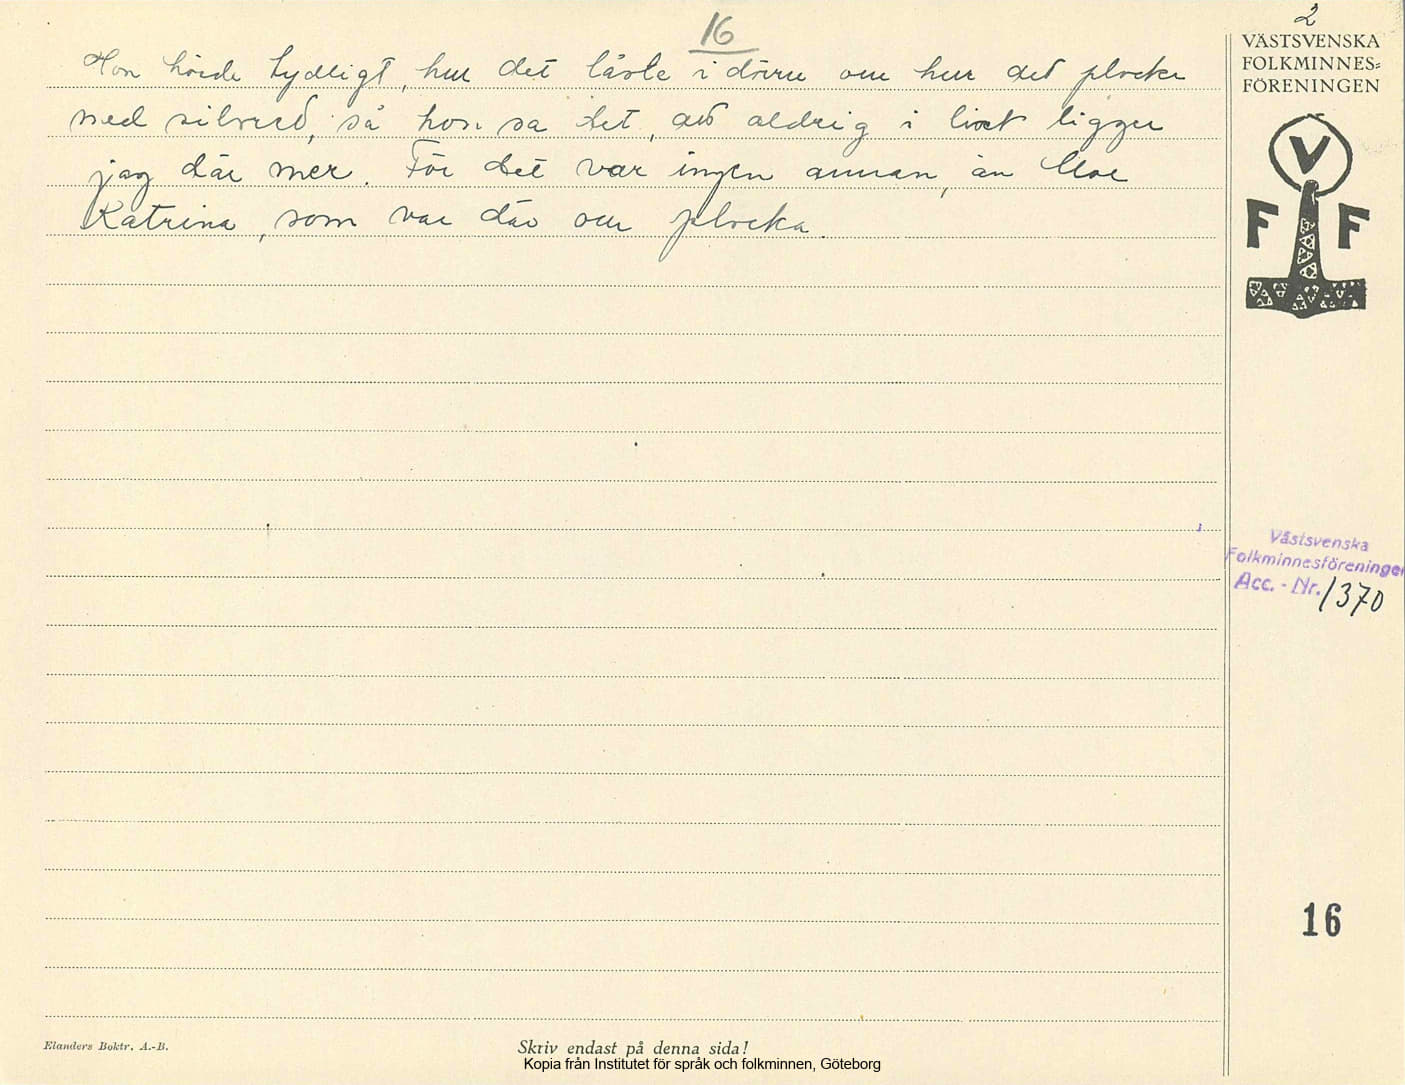 16
2
VÄSTSVENSKA
FOLKMINNES=
FÖRENINGEN
Hon hörde tydligt, hur det låste i dörrn och hur det plocka
ned silvred, så hon sa det, att aldrig i livet ligger
jag där mer. För det var ingen annan, än Moe
Katrina, som var där och plocka.
V
F F
Västsvenska
Folkminnesföreningen
Acc. - Nr. 1370
16
Elanders Boktr. A.-B.
Skriv endast på denna sida!
Kopia från Institutet för språk och folkminnen, Göteborg